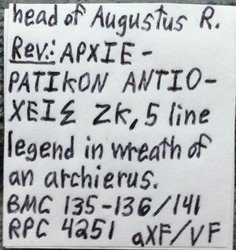 head of Augustus R.
Rev.: ΑΡΧΙΕ-
ΡΑΤΙΚΟΝ ΑΝΤΙΟ-
ΧΕΙΣ ΖΚ, 5 line
legend in wreath of
an archierus.
BMC 135-136/141
RPC 4251 aXF/VF